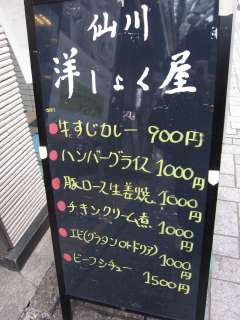 仙川
洋しょく屋
牛すじカレー 900円
ハンバーグライス 1000円
豚ロース生姜焼 1000円
チキンクリーム煮 1000円
エビ(グラタンorドリア) 1000円
ビーフシチュー 1500円